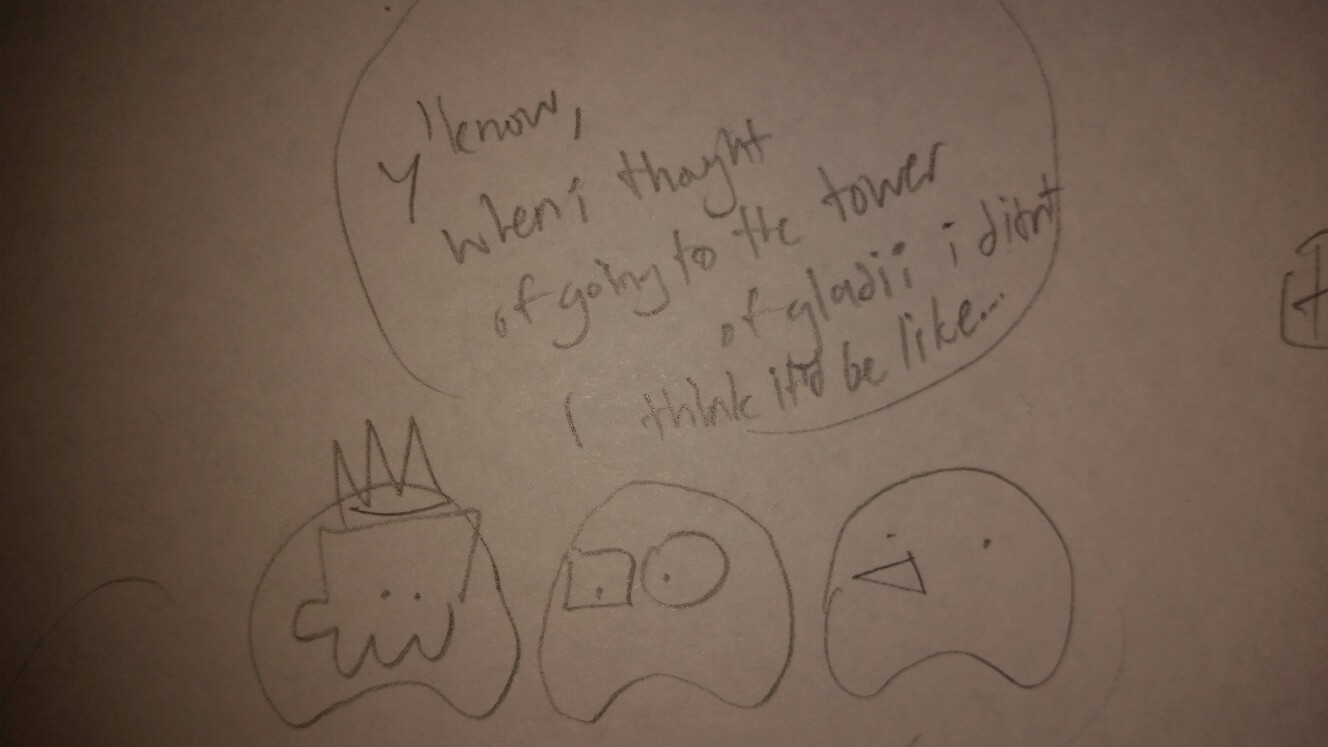 y'know,
when i thought
of going to the tower
of gladii i ditn't
think it'd be like...